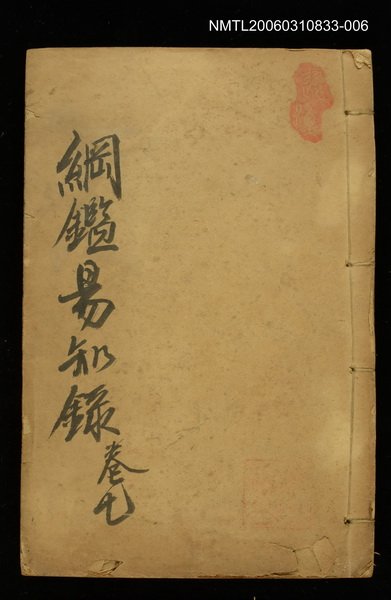 NMTL20060310833-006
綱鑑易知錄
卷七